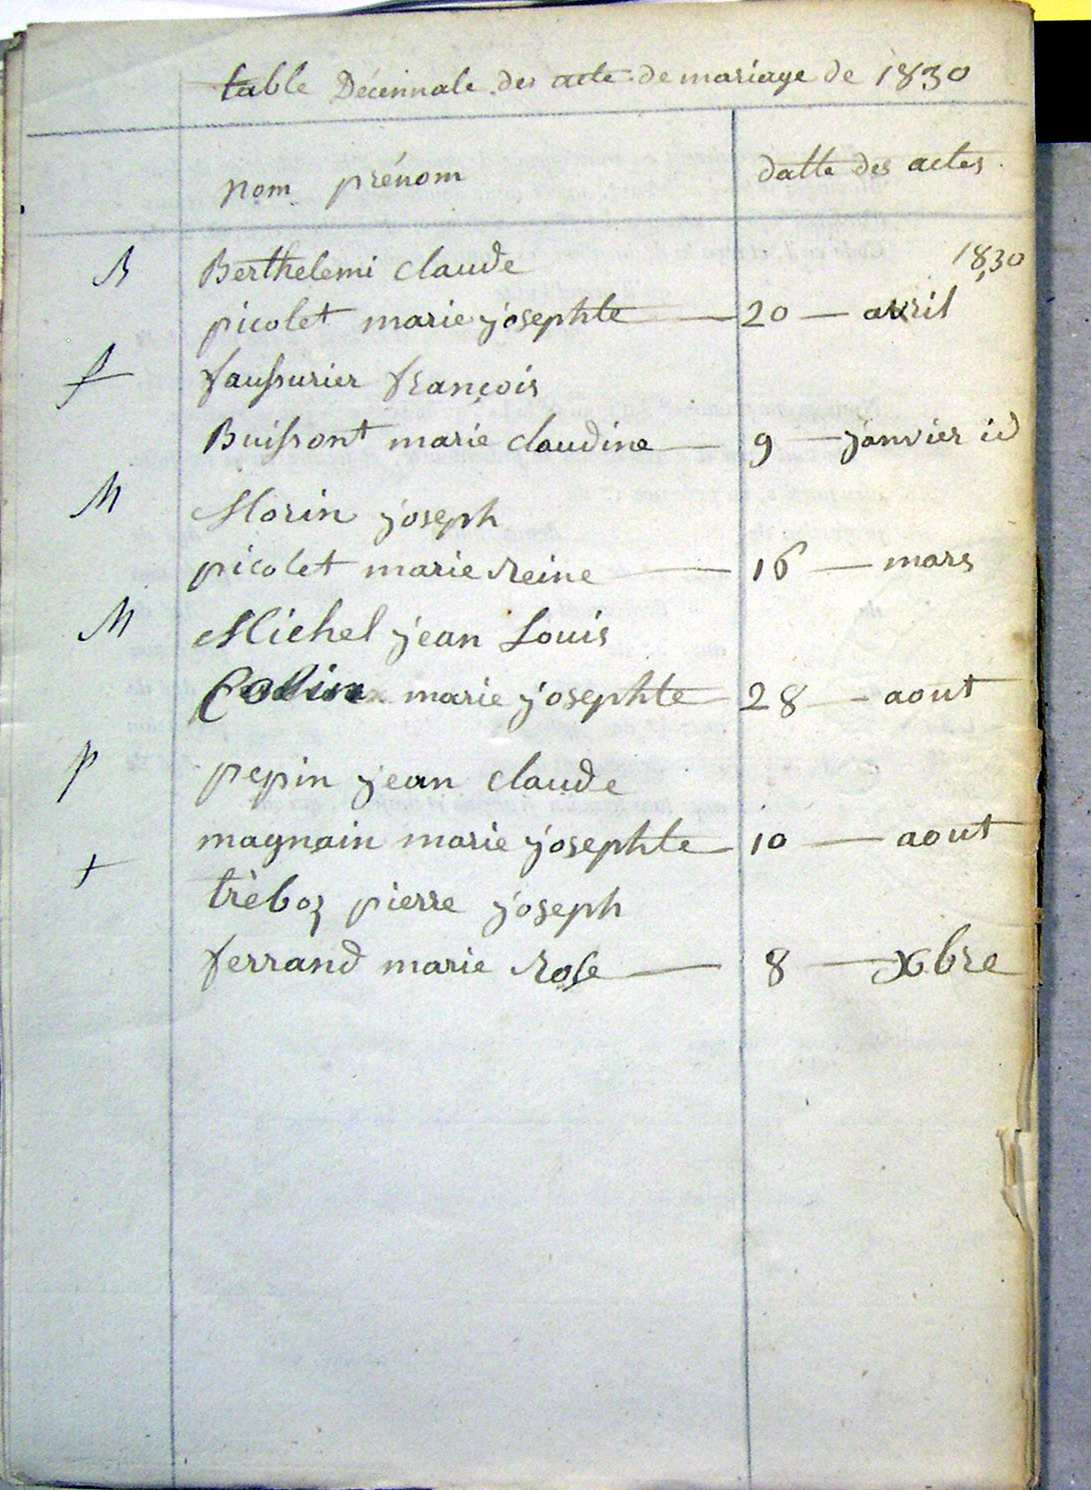 table Décennale des acte de mariage de 1830
nom prénom datte des actes
B Berthelemi claude 1830
picolet marie josephte — 20 — avril
f faussurier françois
Buissont marie claudine — 9 — janvier id
M Morin joseph
picolet marie reine — 16 — mars
M Michel jean Louis
Colin marie josephte — 28 — aout
p pepin jean claude
magnain marie josephte — 10 — aout
t trèboz pierre joseph
ferrand marie rose — 8 — Xbre